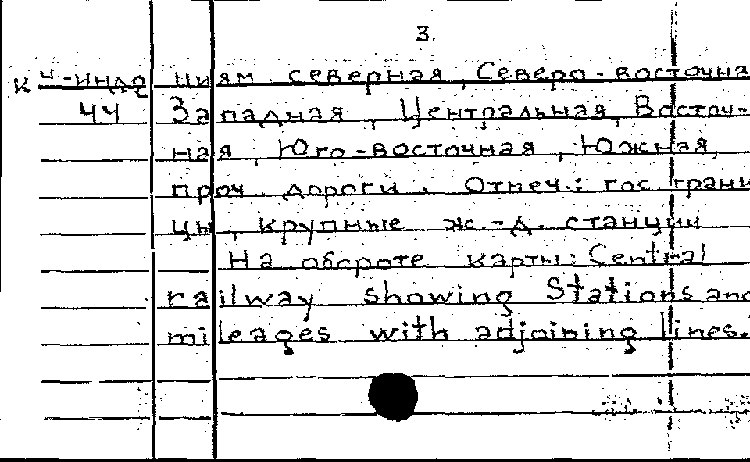 3.
К Ч-Индо циям северная, Северо-восточна
44 Западная, Центральная, Восточ-
ная, Юго-восточная, Южная,
проч. дороги. Отмеч.: гос. грани
цы, крупные ж.-д. станции
На обороте карты: Central
railway showing Stations and
mileages with adjoining lines.